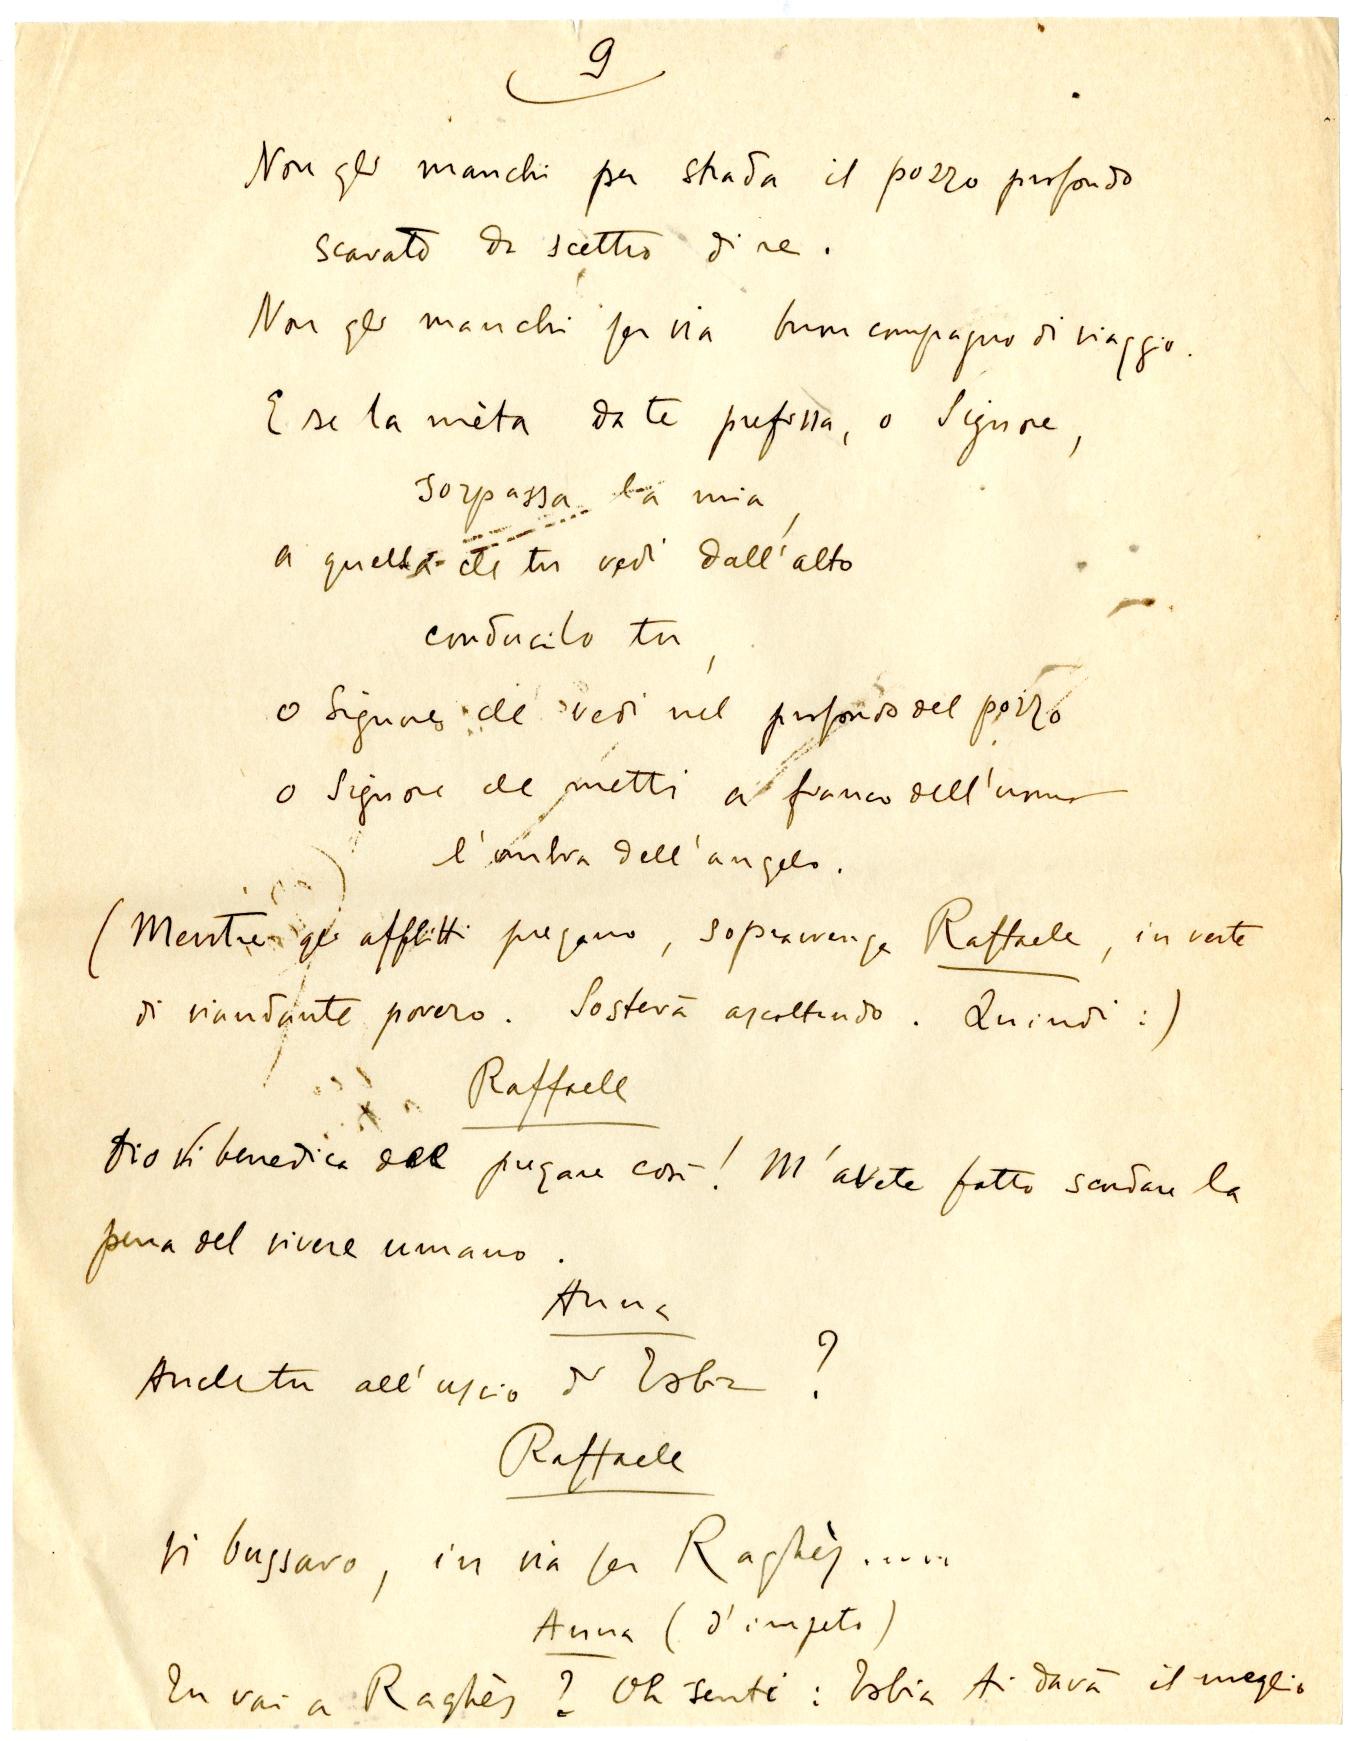 9
Non gli manchi per strada il pozzo profondo
scavato da scettro di re.
Non gli manchi per via buon compagno di viaggio.
E se la mèta da te prefissa, o Signore,
sorpassa la mia,
a quella che tu vedi dall'alto
conducilo tu,
o Signore che vedi nel profondo del pozzo
o Signore che metti a fianco dell'uomo
l'ombra dell'angelo.
(Mentre gli afflitti pregano, sopravvenga Raffaele, in veste
di viandante povero. Sosterà ascoltando. Quindi:)
Raffaele
Dio vi benedica del pregare così! M'avete fatto scordare la
pena del vivere umano.
Anna
Anche tu all'uscio di Tobia?
Raffaele
Vi bussavo, in via per Raghès.....
Anna (d'impeto)
Tu vai a Raghès? Oh senti: Tobia ti darà il meglio